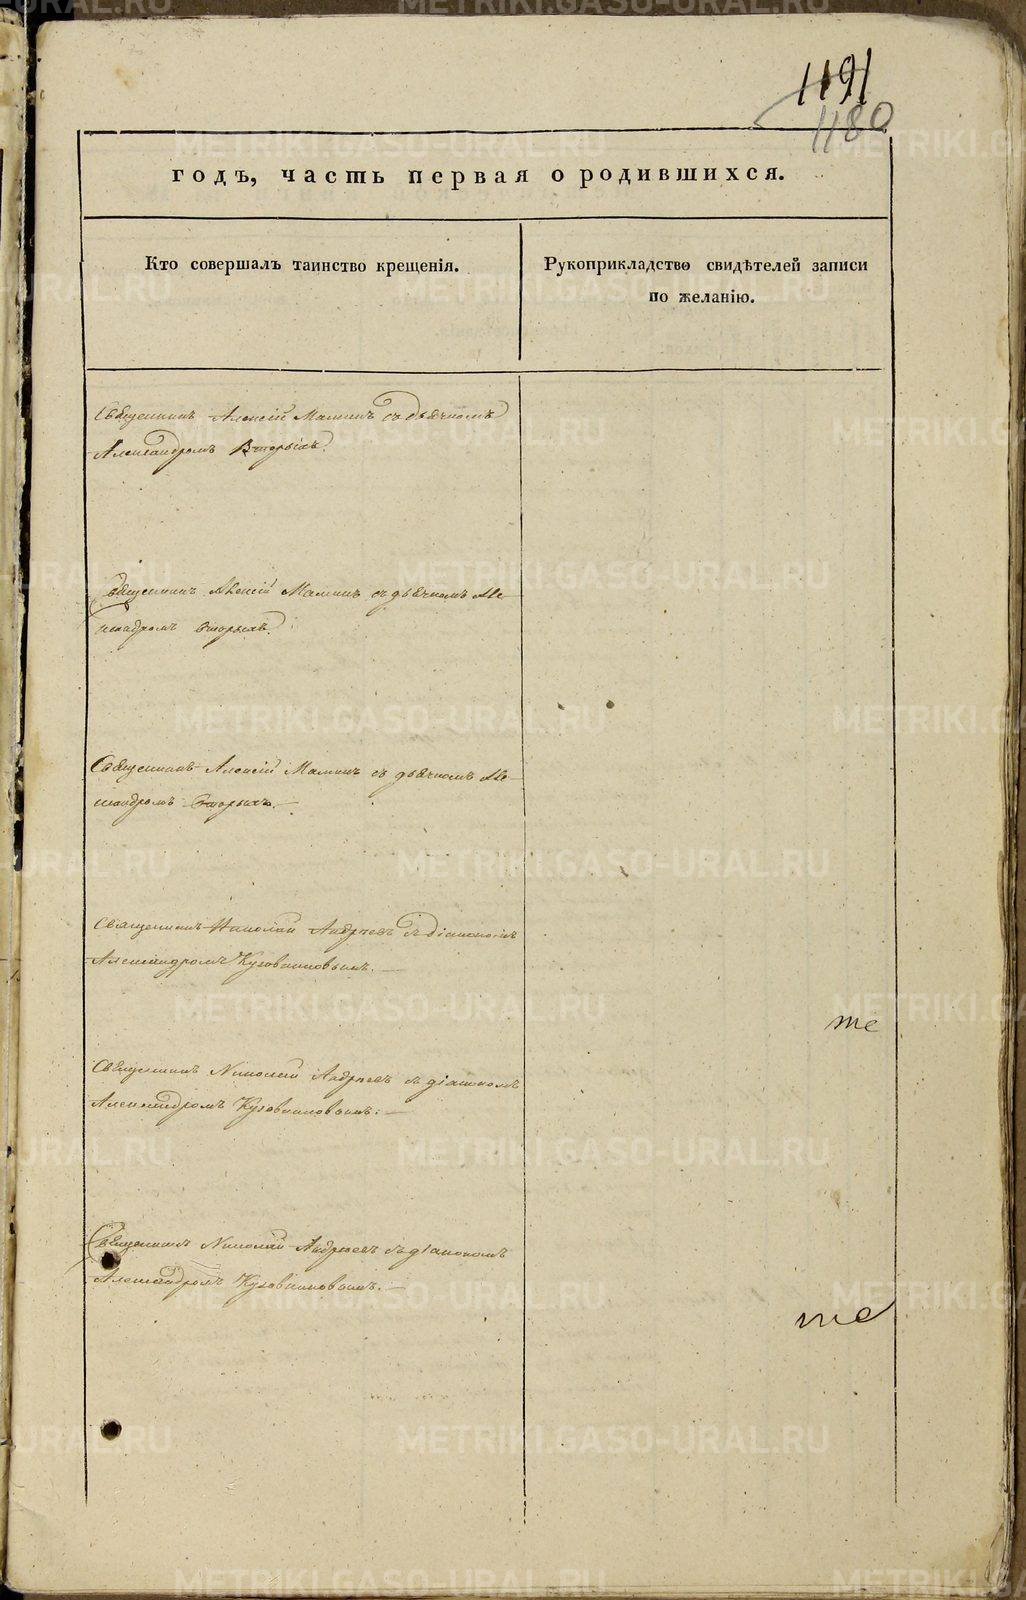 1191
1180
годъ, часть первая о родившихся.
Кто совершалъ таинство крещенія.
Рукоприкладство свидѣтелей записи
по желанію.
Священникъ Алексій Маминъ съ дьячкомъ
Александромъ Вторыхъ.
Священникъ Алексій Маминъ съ дьячкомъ Але-
ксандромъ Вторыхъ.
Священникъ Алексій Маминъ съ дьячкомъ Але-
ксандромъ Вторыхъ.
Священникъ Николай Андреевъ съ діакономъ
Александромъ Кузовниковымъ.
Священникъ Николай Андреевъ съ діакономъ
Александромъ Кузовниковымъ.
Священникъ Николай Андреевъ съ діакономъ
Александромъ Кузовниковымъ.
METRIKI.GASO-URAL.RU